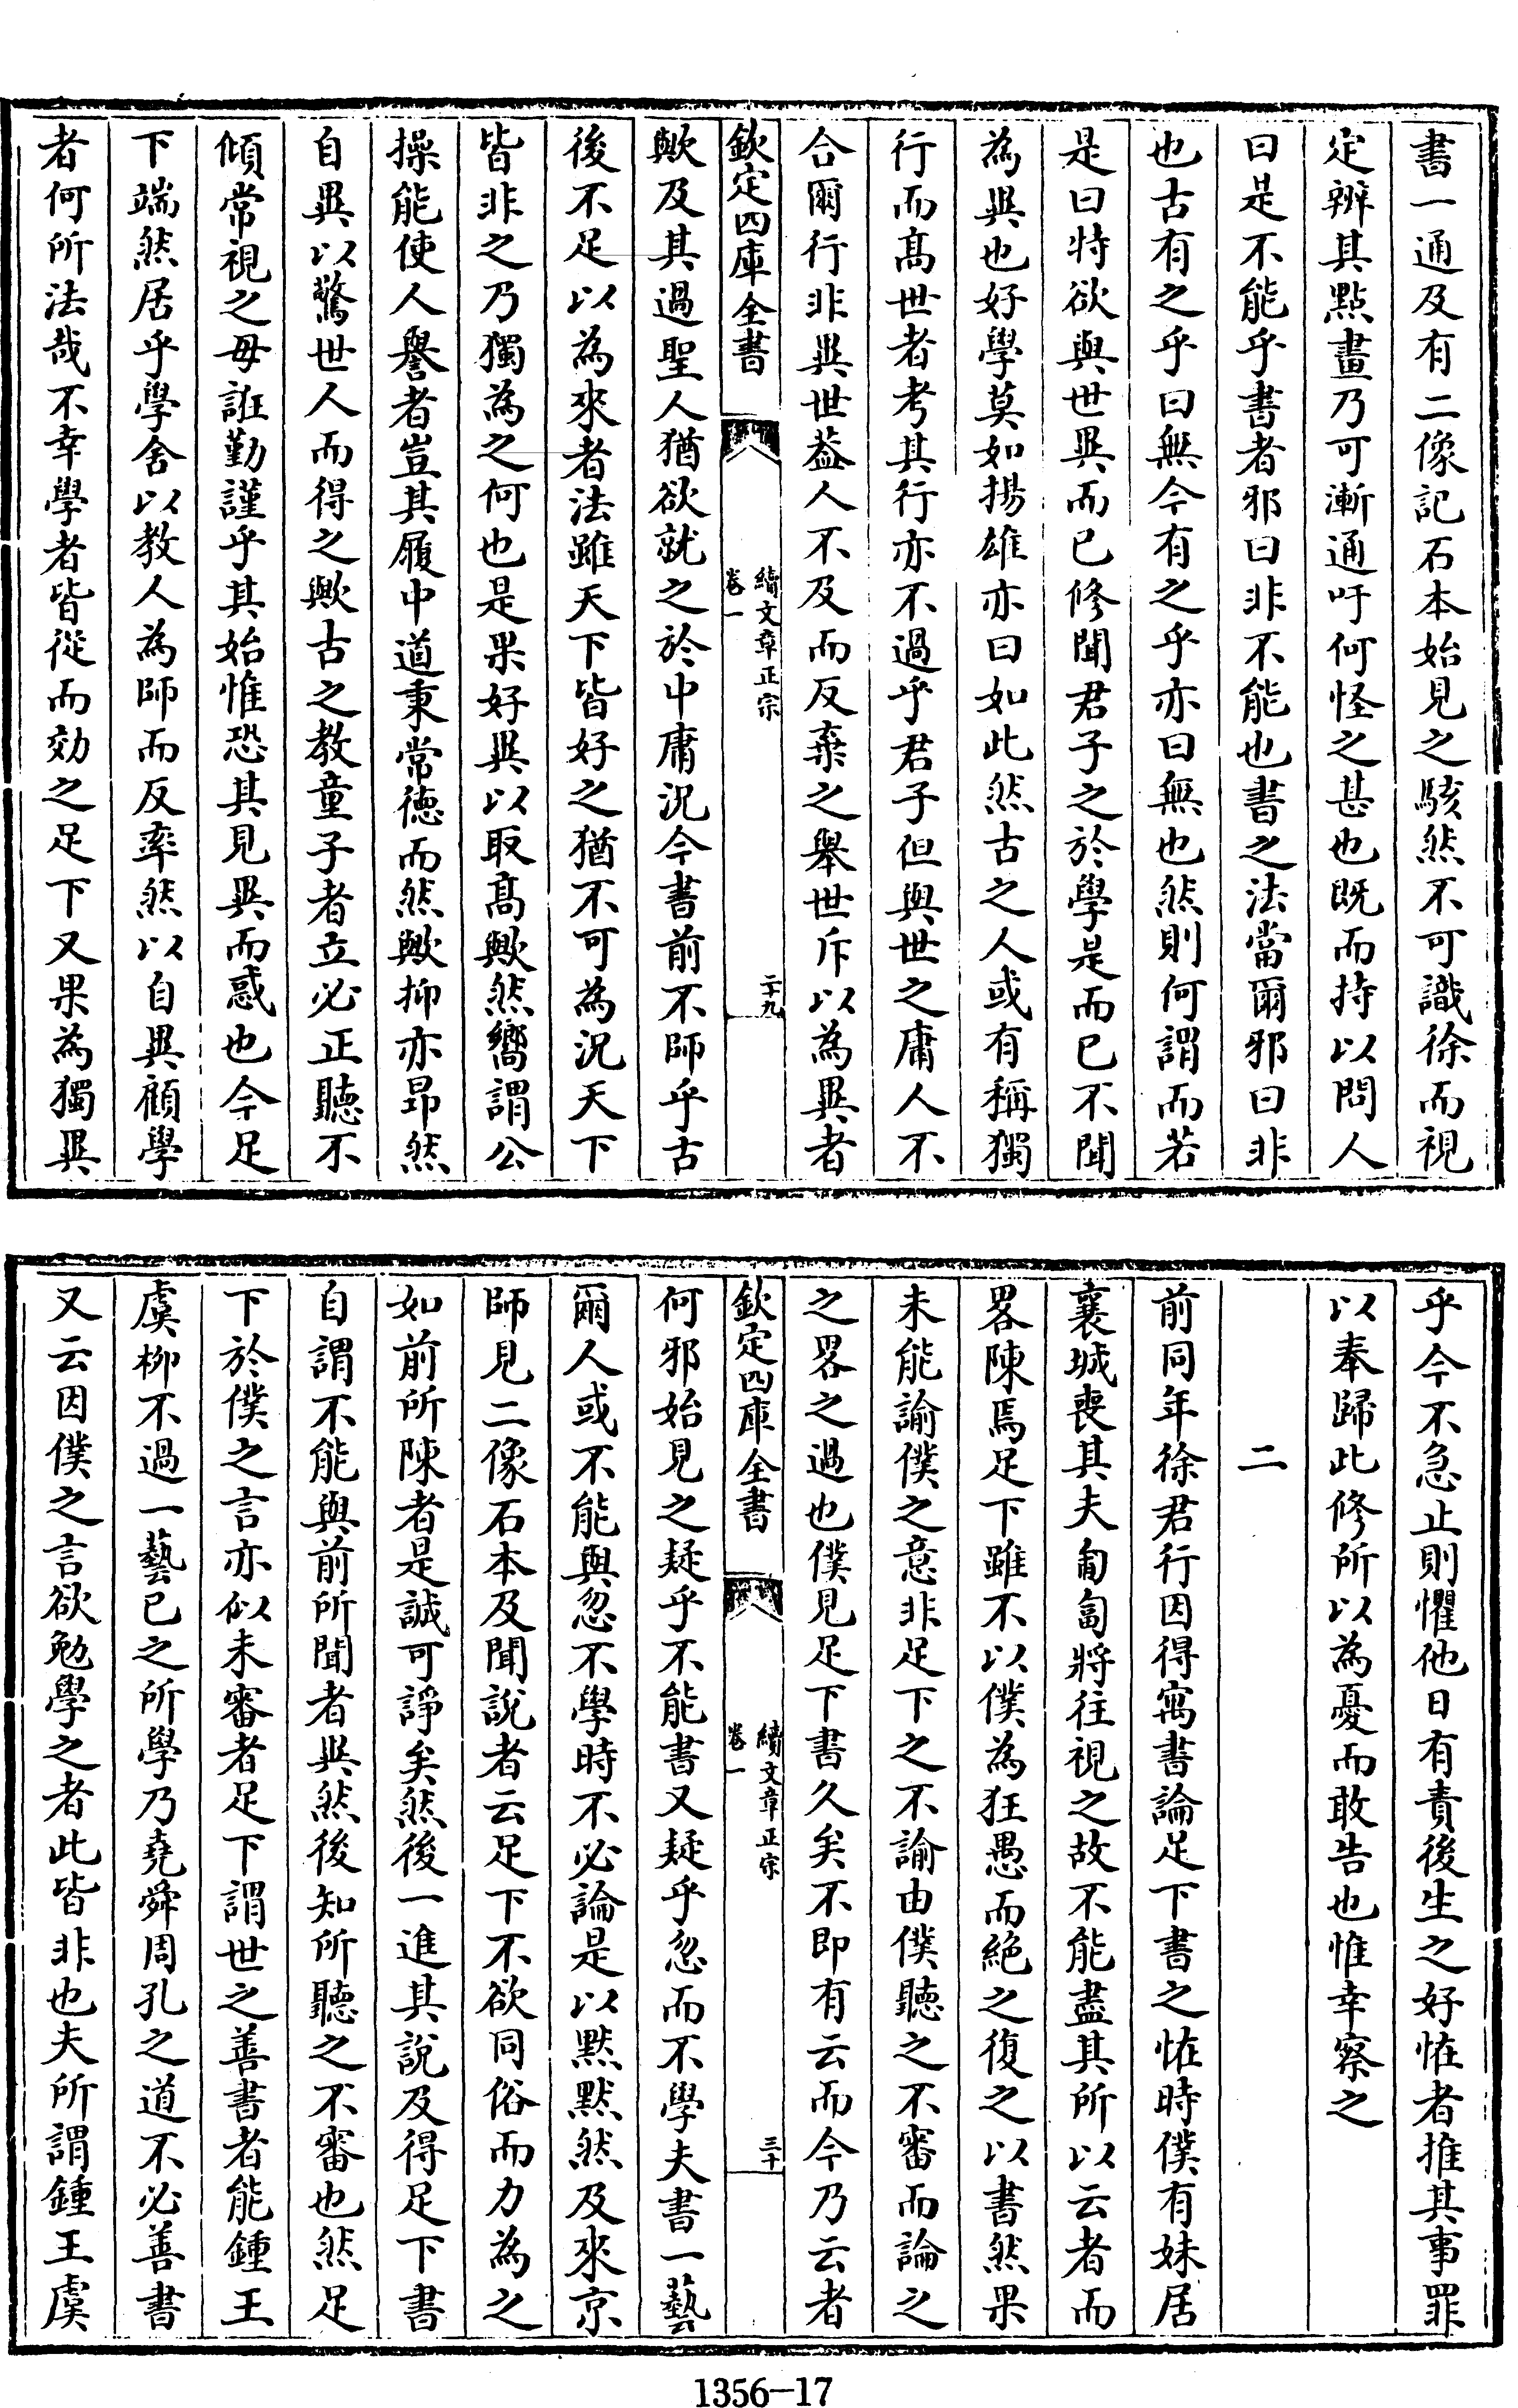 書一通及有二像記石本始見之駭然不可識徐而視
定辨其點畫乃可漸通吁何怪之甚也既而持以問人
曰是不能乎書者邪曰非不能也書之法當爾邪曰非
也古有之乎曰無今有之乎亦曰無也然則何謂而若
是曰特欲與世異而已修聞君子之於學是而已不聞
為異也好學莫如揚雄亦曰如此然古之人或有稱獨
行而髙世者考其行亦不過乎君子但與世之庸人不
合爾行非異世葢人不及而反棄之舉世斥以為異者
欽定四庫全書
續文章正宗
卷一
二十九
歟及其過聖人猶欲就之於中庸況今書前不師乎古
後不足以為來者法雖天下皆好之猶不可為況天下
皆非之乃獨為之何也是果好異以取髙歟然嚮謂公
操能使人譽者豈其履中道秉常徳而然歟抑亦昻然
自異以驚世人而得之歟古之教童子者立必正聽不
傾常視之毋誑勤謹乎其始惟恐其見異而惑也今足
下端然居乎學舍以教人為師而反率然以自異顧學
者何所法哉不幸學者皆從而効之足下又果為獨異
乎今不急止則懼他日有責後生之好怪者推其事罪
以奉歸此修所以為憂而敢告也惟幸察之
二
前同年徐君行因得寓書論足下書之怪時僕有妹居
襄城喪其夫匍匐將往視之故不能盡其所以云者而
畧陳焉足下雖不以僕為狂愚而絶之復之以書然果
未能諭僕之意非足下之不諭由僕聽之不審而論之
之畧之過也僕見足下書久矣不即有云而今乃云者
欽定四庫全書
續文章正宗
卷一
三十
何邪始見之疑乎不能書又疑乎忽而不學夫書一藝
爾人或不能與忽不學時不必論是以黙黙然及來京
師見二像石本及聞說者云足下不欲同俗而力為之
如前所陳者是誠可諍矣然後一進其說及得足下書
自謂不能與前所聞者異然後知所聽之不審也然足
下於僕之言亦似未審者足下謂世之善書者能鍾王
虞柳不過一藝已之所學乃堯舜周孔之道不必善書
又云因僕之言欲勉學之者此皆非也夫所謂鍾王虞
1356-17